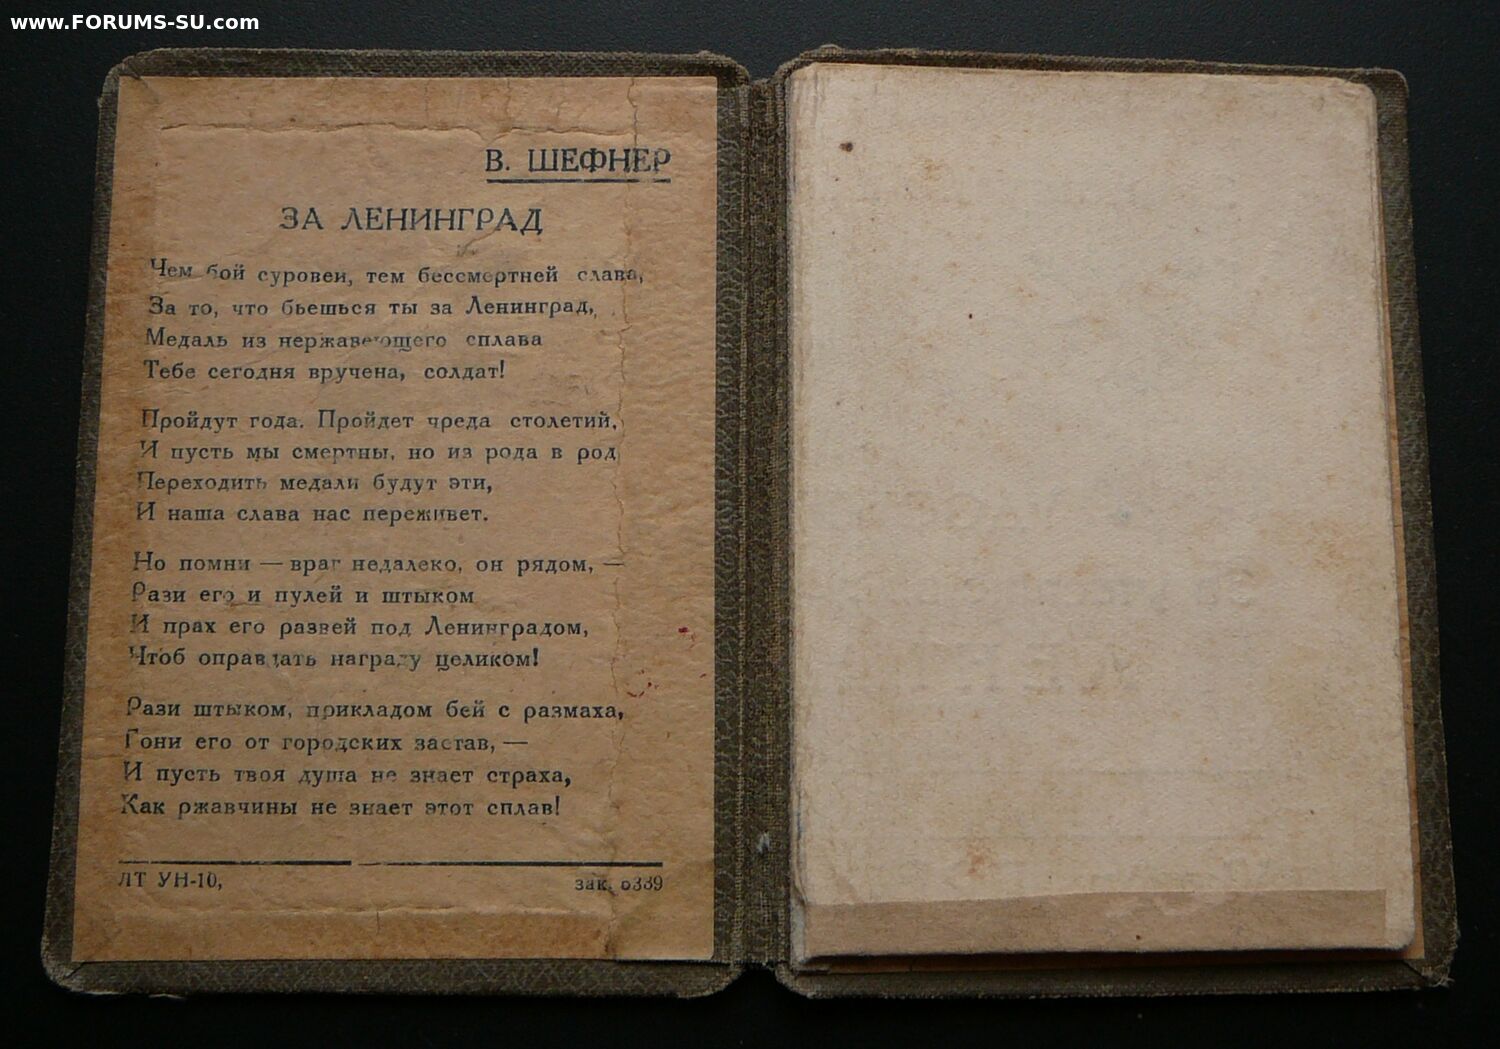 www.FORUMS-SU.com
В. ШЕФНЕР
ЗА ЛЕНИНГРАД
Чем бой суровей, тем бессмертней слава,
За то, что бьешься ты за Ленинград,
Медаль из нержавеющего сплава
Тебе сегодня вручена, солдат!
Пройдут года. Пройдет чреда столетий,
И пусть мы смертны, но из рода в род
Переходить медали будут эти,
И наша слава нас переживет.
Но помни — враг недалеко, он рядом, —
Рази его и пулей и штыком
И прах его развей под Ленинградом,
Чтоб оправдать награду целиком!
Рази штыком, прикладом бей с размаха,
Гони его от городских застав, —
И пусть твоя душа не знает страха,
Как ржавчины не знает этот сплав!
ЛТ УН-10,
зак. о339